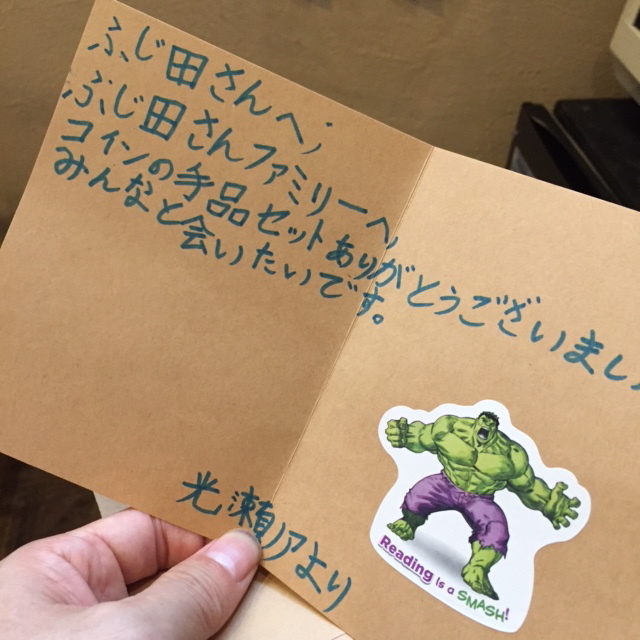 ふじ田さんへ,
ふじ田さんファミリーへ,
コインの手品セットありがとうございました
みんなと会いたいです。
光瀬リアより
Reading is a SMASH!